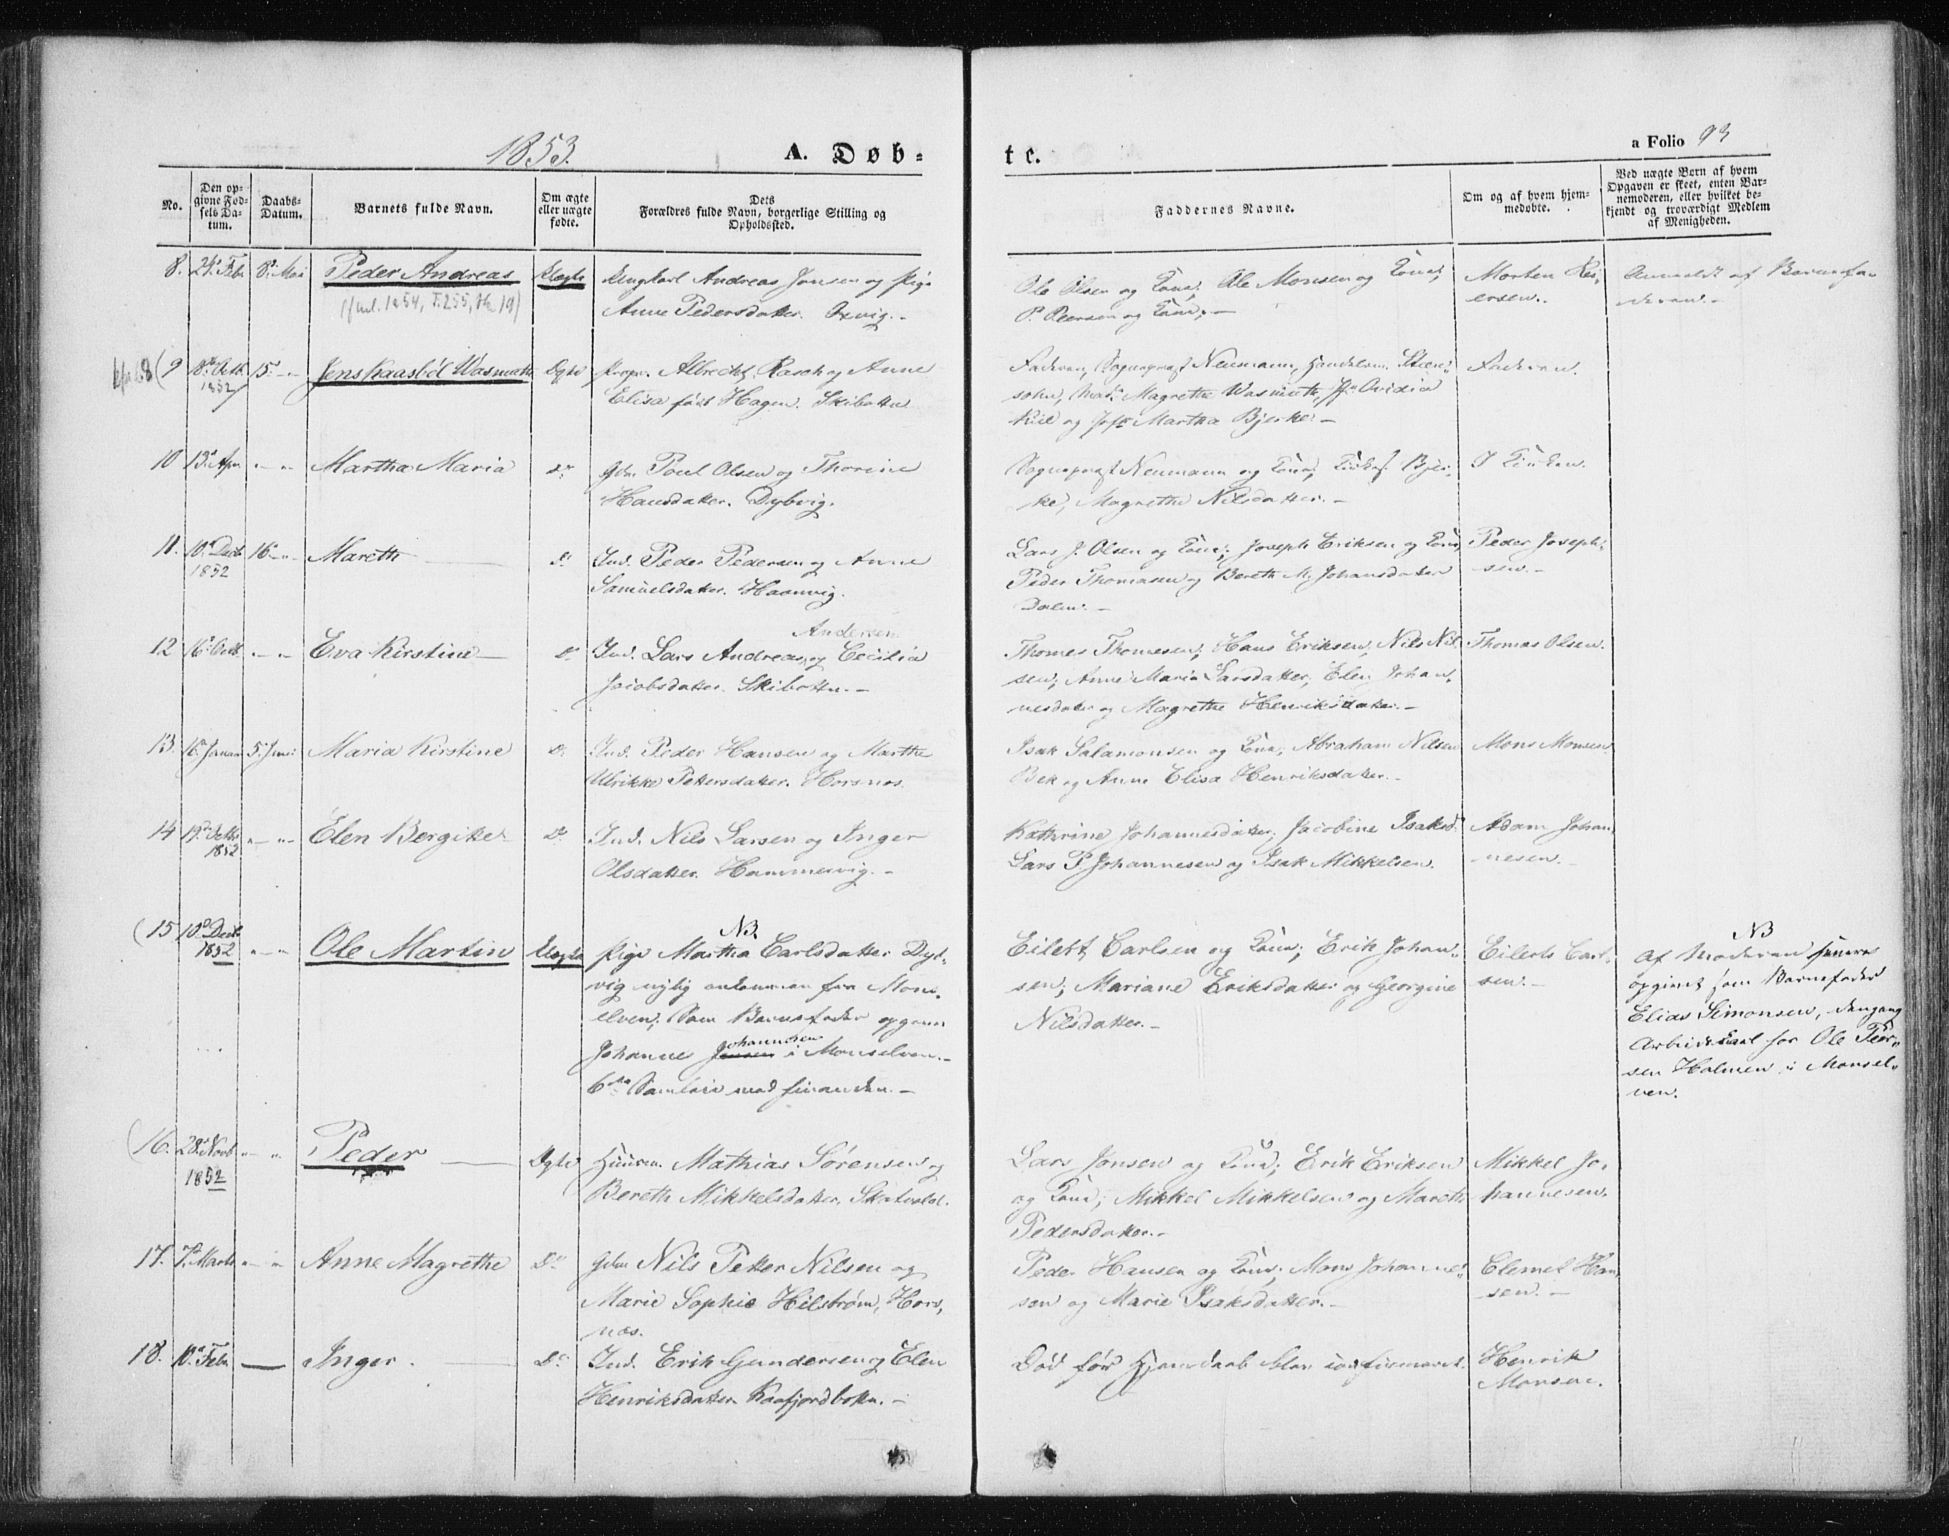 1853.
A. Døb-
te.
a Folio 93
No.
Den op-
givne Fød-
sels Da-
tum.
Daabs-
Datum.
Barnets fulde Navn.
Om ægte
eller uægte
fødte.
Dets
Forældres fulde Navn, borgerlige Stilling og
Opholdssted.
Faddernes Navne.
Om og af hvem hjem-
medøbte.
Ved uægte Børn af hvem
Opgaven er skeet, enten Bar-
nemoderen, eller hvilket be-
kjendt og troværdigt Medlem
af Menigheden.
8. 24. Febr 8. Mai Peder Andreas Uægte Ungkarl Andreas Jonsen og Pige
Anne Pedersdatter.
Ole Olsen og Kone; Ole Monsen og Kone;
P. Peersen og Kone; –
Morten Pe-
ersen.
Anmeldt af Barnefa-
deren. –
9 18. Octb. 15. – Jens Kaasbøl Wasmuth Ægte Albrecht Rasch og Anne
1852
Elisa født Hagen. Skibotten
Faderen, Sogneprest Neumann, Handelsm. Steen-
sohn, Mad. Magrethe Wasmuth, Jfr Ovidia
Kiil og Jfr Martha Bjerke. –
Faderen.
10 13. Apr. – – Martha Maria Do Gbr. Poul Olsen og Thorine
Hansdatter. Dybvig.
Sogneprest Neumann og Kone, Bjer-
ke, Magrethe Nilsdatter. –
I Kirken.
11. 10. Decb. 16. – Mareth Do Ind. Peder Pedersen og Anne
1852
Samuelsdatter.
Lars J. Olsen og Kone; Joseph Eriksen og Kone
Peder Thomasen og Bereth M. Johansdatter
Dalen. –
Peder Joseph-
sen. –
12 16. Octb. – – Eva Kirstine Do Ind. Lars Andreas og Cecilia
Andersen
Jacobsdatter. Skibotten. –
Thomes Thomesen; Hans Eriksen, Nils Nil-
sen; Anne Maria Larsdatter, Elen Johan-
nesdatter og Magrethe Henriksdatter. –
Thomas Olsen.
13. 16. Januar 5. Juni Maria Kirstine Do Ind. Peder Hansen og Marthe
Ulrikke Pettersdatter. Horsnes.
Isak Salamonsen og Kone, Abraham Nilsen
Bek og Anne Elisa Henriksdatter. –
Mons Monsen
14 19. Octbr – – Elen Bergithe Do Ind. Nils Larsen og Inger
1852
Olsdatter. Hammervig. –
Kathrine Johannesdatter, Jacobine Isaksd.
Lars P. Johannesen og Isak Mikkelsen.
Adam Johan-
nesen. –
15 10. Decb. – – Ole Martin Uægte Pige Martha Carlsdatter Dyb-
1852
NB.
vig nylig ankommen fra Mons-
elven; Som Barnefader opgives
Johanne Jensen i Monselven. –
Johannesen
Eilert Carlsen og Kone; Erik Johan-
sen; Mariane Eriksdatter og Georgine
Nilsdatter. –
Eilerts Carl-
sen. –
NB
Af Moderen senere
opgivet som Barnefader
Elias Simonsen, dengang
Arbeidskarl hos Ole Peer-
sen Holmen i Monsel-
ven.
16. 28. Novb – – Peder Ægte Huusm. Mathias Sørensen og
1852
Bereth Mikkelsdatter.
Lars Jonsen og Kone; Erik Eriksen
og Kone; Mikkel Mikkelsen og Mareth
Pedersdatter. –
Mikkel Jo-
hannesen.
17. 7. Marts – – Anne Magrethe Do Gbr. Nils Petter Nilsen og
Marie Sophie Hilstrøm, Hors-
nes.
Peder Hansen og Kone; Mons Johanne-
sen og Marie Isaksdatter. –
Clemet Han-
sen. –
18. 10. Febr. — Inger. Do Ind. Erik Gundersen og Elen
Henriksdatter Kaafjordbotn. –
Død før Hjemdaab blev confirmeret.
Henrik
Monsen.